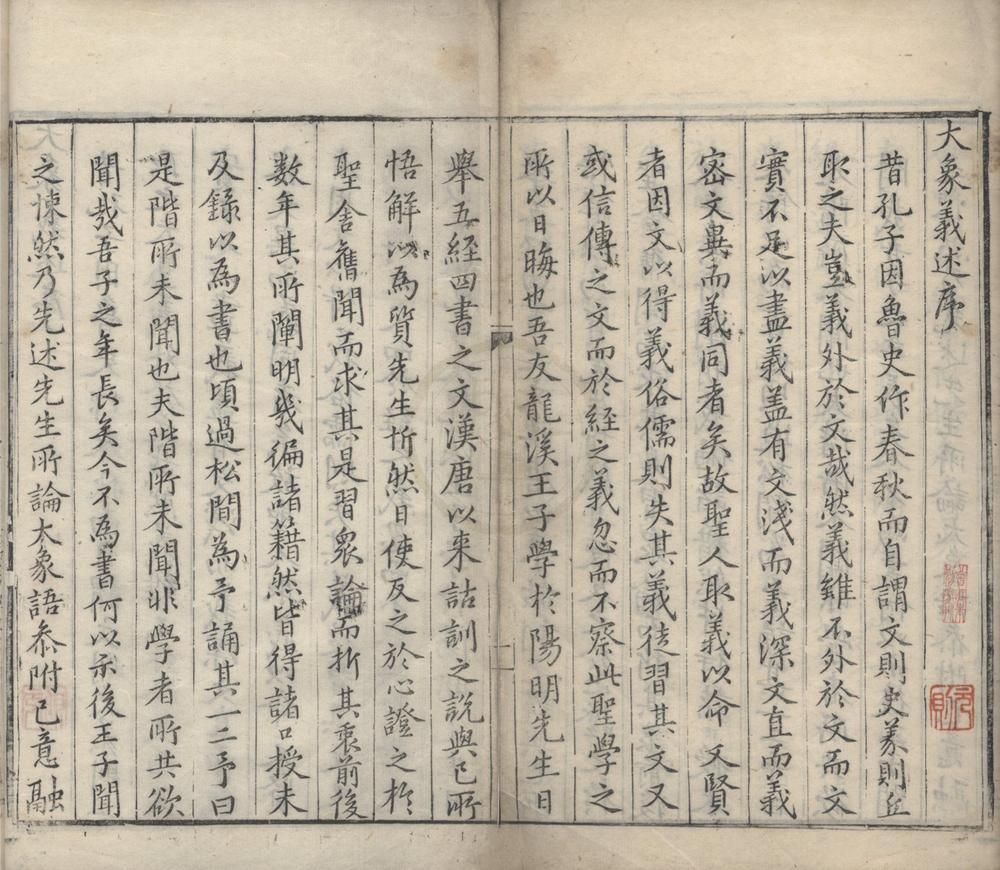 大象義述序
昔孔子因魯史作春秋而自謂文則史義則丘
取之夫豈義外於文哉然義雖不外於文而文
實不足以盡義盖有文淺而義深文直而義
密文異而義同者矣故聖人取義以命文賢
者因文以得義俗儒則失其義徒習其文又
或信傳之文而於経之義忽而不察此聖學之
所以日晦也吾友龍溪王子學於陽明先生日
舉五経四書之文漢唐以来詁訓之說與已所
悟解以為質先生忻然日使反之於心證之於
聖舍舊聞而求其是習衆論而折其衷前後
数年其所闡明幾徧諸籍然皆得諸口授未
及録以為書也頃過松間為予誦其一二予曰
是階所未聞也夫階所未聞非學者所共欲
聞哉吾子之年長矣今不為書何以示後王子聞
之悚然乃先述先生所論大象語叅附已意融